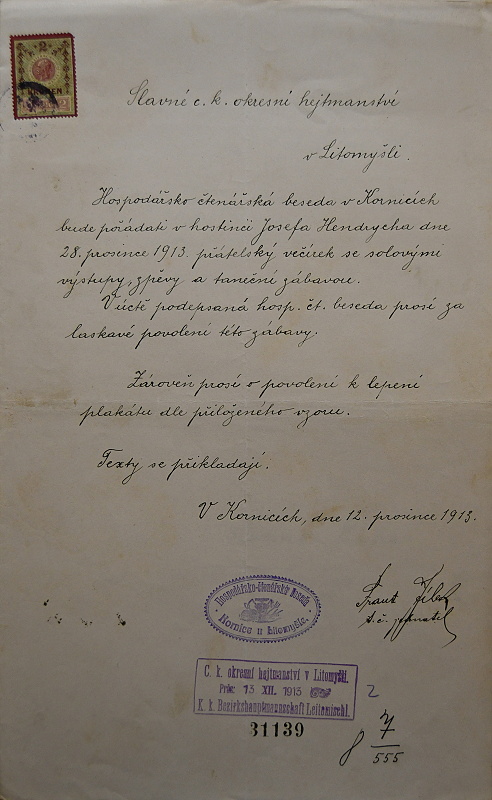 2
Slavné c. k. okresní hejtmanství
v Litomyšli.
Hospodářsko čtenářská beseda v Kornicích
bude pořádati v hostinci Josefa Hendrycha dne
28. prosince 1913. přátelský večírek se solovými
výstupy, zpěvy a taneční zábavou.
V úctě podepsaná hosp. čt. beseda prosí za
laskavé povolení této zábavy.
Zároveň prosí o povolení k lepení
plakátu dle přiloženého vzoru.
Texty se přikládají.
V Kornicích, dne 12. prosince 1913.
Frant
t. č. jednatel
Hospodářsko-čtenářská Beseda
Kornice u Litomyšle.
C. k. okresní hejtmanství v Litomyšli.
Präs: 13 XII. 1913
K. k. Bezirkshauptmannschaft Leitomischl.
2
31139
7
555